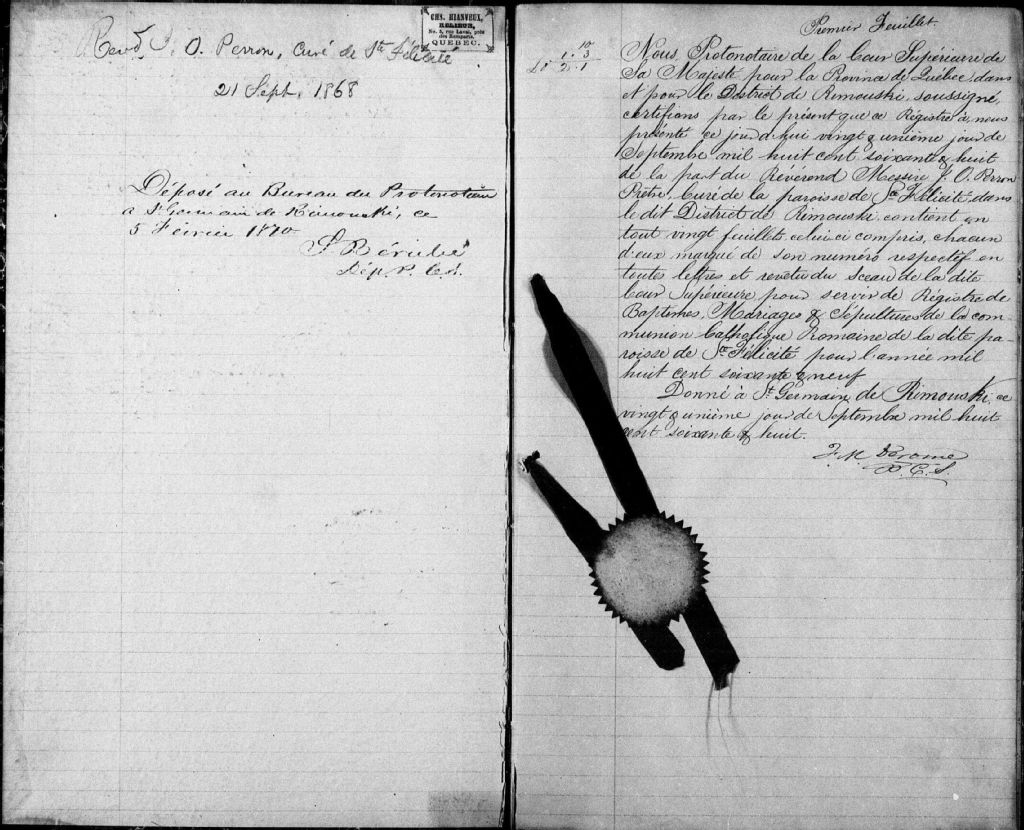 CHS. HIANVEUX,
RELIEUR,
No. 5, rue Laval, près
des Remparts,
QUEBEC.
Revd J. O. Perron, Curé de Ste Félicité
21 Sept. 1868
Déposé au Bureau du Protonotaire
a St Germain de Rimouski, ce
5 Février 1870
Bérubé
Dép. P.
Premier Feuillet.
Nous, Protonotaire de la Cour Supérieure de
Sa Majesté pour la Province de Québec, dans
et pour le District de Rimouski, soussigné,
certifions par le présent que ce Régistre à nous
présenté ce jourd'hui vingt & unième jour de
Septembre mil huit cent soixante & huit
de la part du Révérend Messire J. O. Perron
Prêtre, Curé de la paroisse de Ste Félicité, dans
le dit District de Rimouski, contient en
tout vingt feuillets, celui ci compris, chacun
d'eux marqué de son numéro respectif en
toutes lettres et revêtu du sceau de la dite
Cour Supérieure pour servir de Régistre de
Baptêmes, Mariages & Sépultures de la com-
munion Catholique Romaine de la dite pa-
roisse de Ste Félicité pour l'année mil
huit cent soixante & neuf
Donné à St Germain de Rimouski, ce
vingt & unième jour de Septembre mil huit
cent soixante & huit.
J. M. Derome
P. C. S.